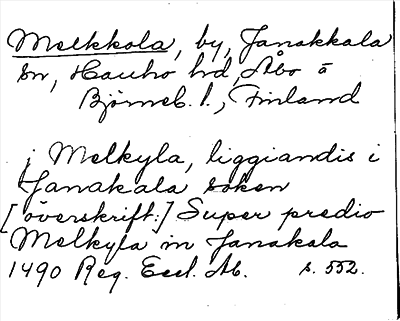 Melkkola, by, Janakkala
sn, Hauho hd, Åbo o
Björneb. l., Finland
j Melkyla, liggiandis i
Janakala soken
[överskrift:] Super predio
Melkyla in Janakala
1490 Reg. Eccl. Ab. s. 552.